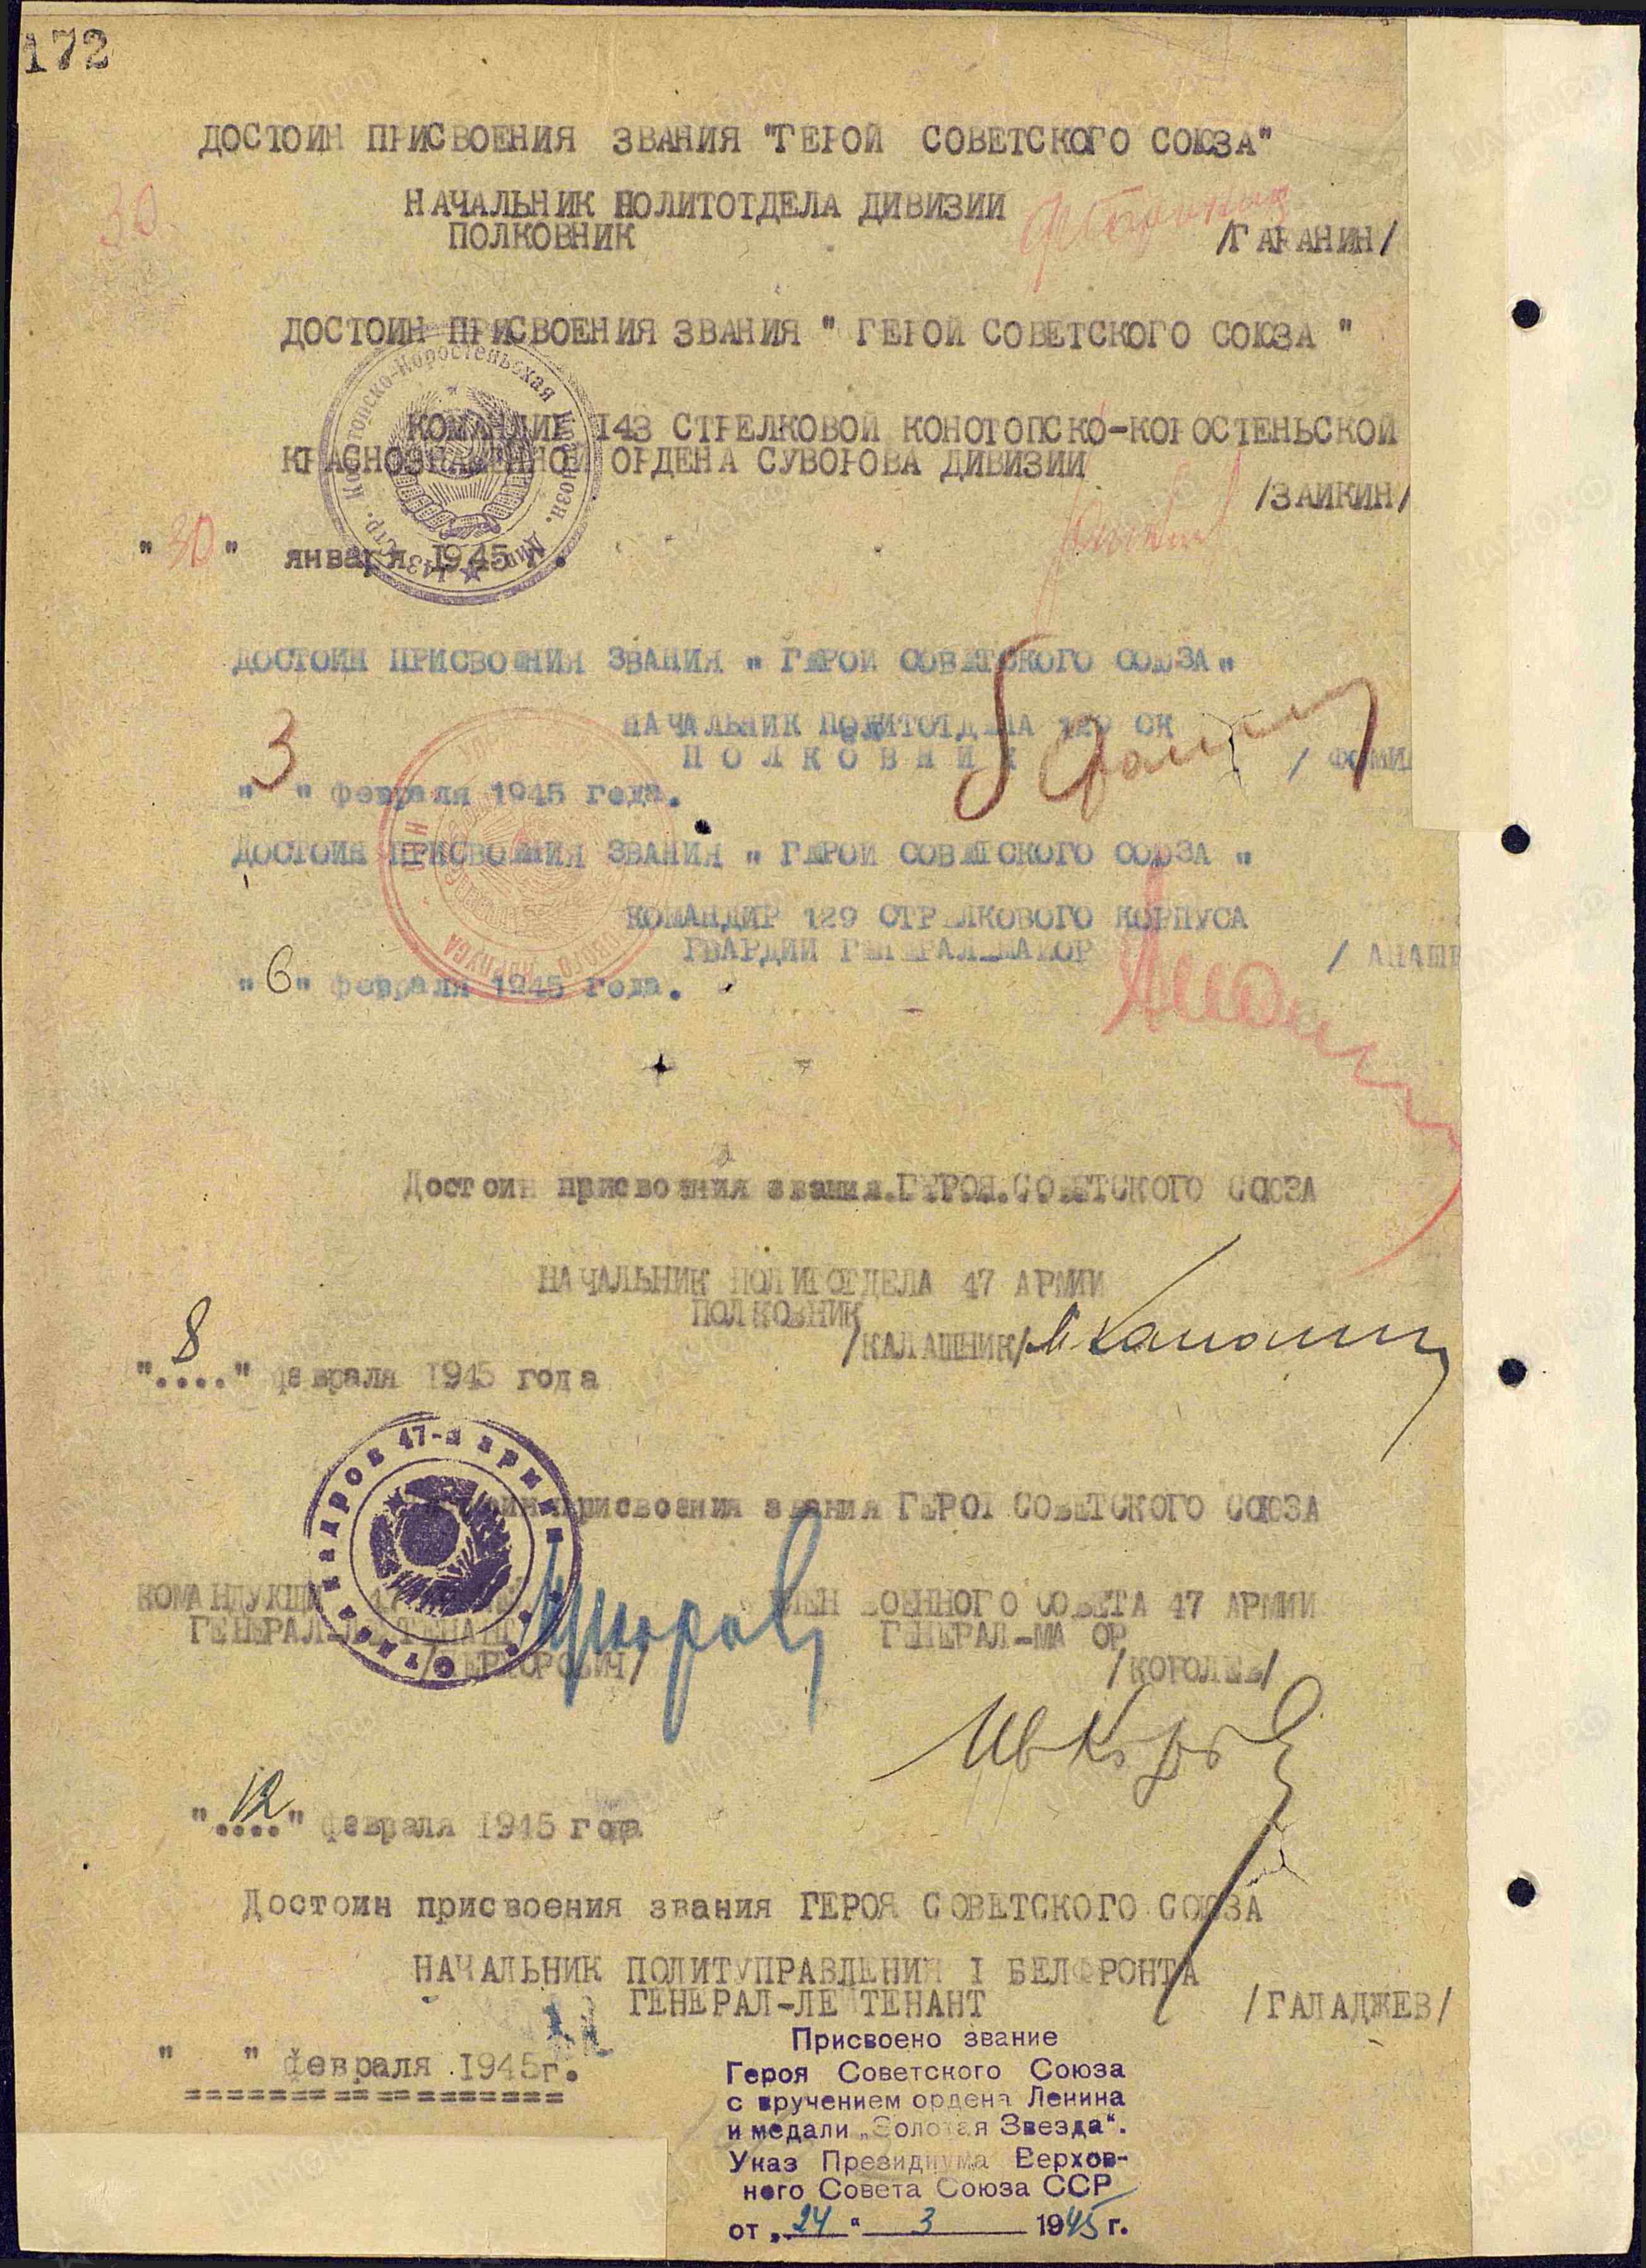 172
ДОСТОИН ПРИСВОЕНИЯ ЗВАНИЯ "ГЕРОЙ СОВЕТСКОГО СОЮЗА"
30
НАЧАЛЬНИК ПОЛИТОТДЕЛА ДИВИЗИИ
ПОЛКОВНИК
/ГАРАНИН/
ДОСТОИН ПРИСВОЕНИЯ ЗВАНИЯ " ГЕРОЙ СОВЕТСКОГО СОЮЗА "
КОМАНДИР 143 СТРЕЛКОВОЙ КОНОТОПСКО-КОРОСТЕНЬСКОЙ
КРАСНОЗНАМЕННОЙ ОРДЕНА СУВОРОВА ДИВИЗИИ
/ЗАИКИН/
"30" января 1945 г.
ДОСТОИН ПРИСВОЕНИЯ ЗВАНИЯ " ГЕРОЙ СОВЕТСКОГО СОЮЗА "
НАЧАЛЬНИК ПОЛИТОТДЕЛА 129 СК
ПОЛКОВНИК
/ ФОМИ
"3" февраля 1945 года.
ДОСТОИН ПРИСВОЕНИЯ ЗВАНИЯ " ГЕРОЙ СОВЕТСКОГО СОЮЗА "
КОМАНДИР 129 СТРЕЛКОВОГО КОРПУСА
ГВАРДИИ ГЕНЕРАЛ-МАЙОР
/ АНАШ
"6" февраля 1945 года.
Достоин присвоения звания.ГЕРОЯ.СОВЕТСКОГО СОЮЗА
НАЧАЛЬНИК ПОЛИТОТДЕЛА 47 АРМИИ
ПОЛКОВНИК
/КАЛАШНИК/
"8" февраля 1945 года
Отдел кадров 47-й армии
присвоения звания ГЕРОЯ СОВЕТСКОГО СОЮЗА
КОМАНДУЮЩИЙ 47
ЧЛЕН ВОЕННОГО СОВЕТА 47 АРМИИ
ГЕНЕРАЛ-ЛЕЙТЕНАНТ
ГЕНЕРАЛ-МАЙОР
/ПЕРХОРОВИЧ/
/КОРОЛЕВ/
"12" февраля 1945 года
Достоин присвоения звания ГЕРОЯ СОВЕТСКОГО СОЮЗА
НАЧАЛЬНИК ПОЛИТУПРАВЛЕНИЯ I БЕЛФРОНТА
ГЕНЕРАЛ-ЛЕЙТЕНАНТ
/ГАЛАДЖЕВ/
" " февраля 1945г.
==================
Присвоено звание
Героя Советского Союза
с вручением ордена Ленина
и медали „Золотая Звезда“.
Указ Президиума Верхов-
ного Совета Союза ССР
от „24“ 3 1945 г.